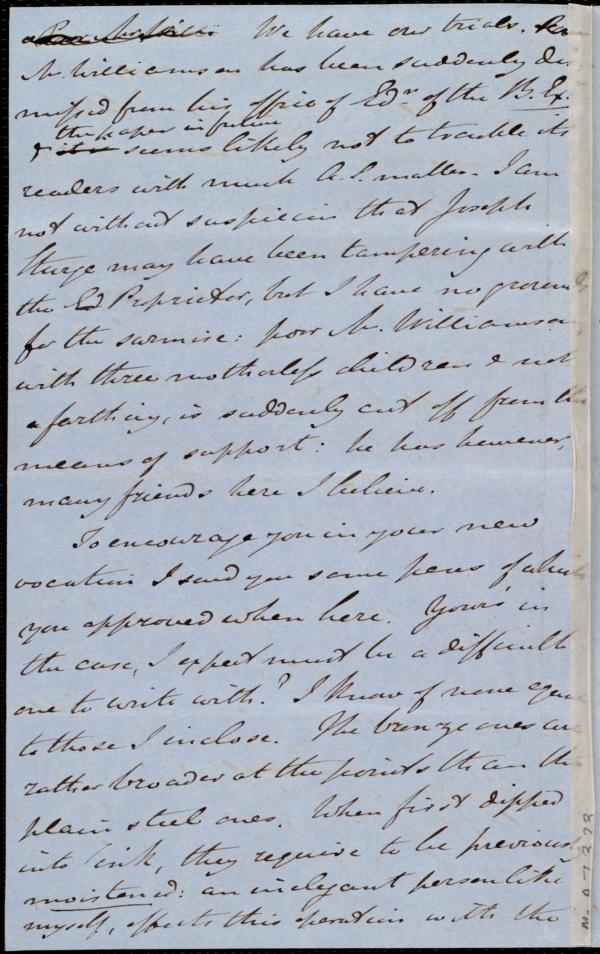 We have our trials.
Mr. Williamson has been suddenly dis
missed from his office of Edr. of the B. Ex.
& the paper in future
seems likely not to trouble its
readers with much A.S. matter. I am
not without suspicion that Joseph
Sturge may have been tampering with
the Proprietor, but I have no grounds
for the surmise: poor Mr. Williamson,
with three motherless children & not
a farthing, is suddenly cut off from the
means of support: he has however,
many friends here I believe.
To encourage you in your new
vocation I send you some pens of which
you approved when here. Yours in
the case, I expect must be a difficult
one to write with? I know of none equal
to those I inclose. The bronze ones are
rather broader at the points than the
plain steel ones. When first dipped
into ink, they require to be previously
moistened: an inelegant person like
myself, effects this operation with the